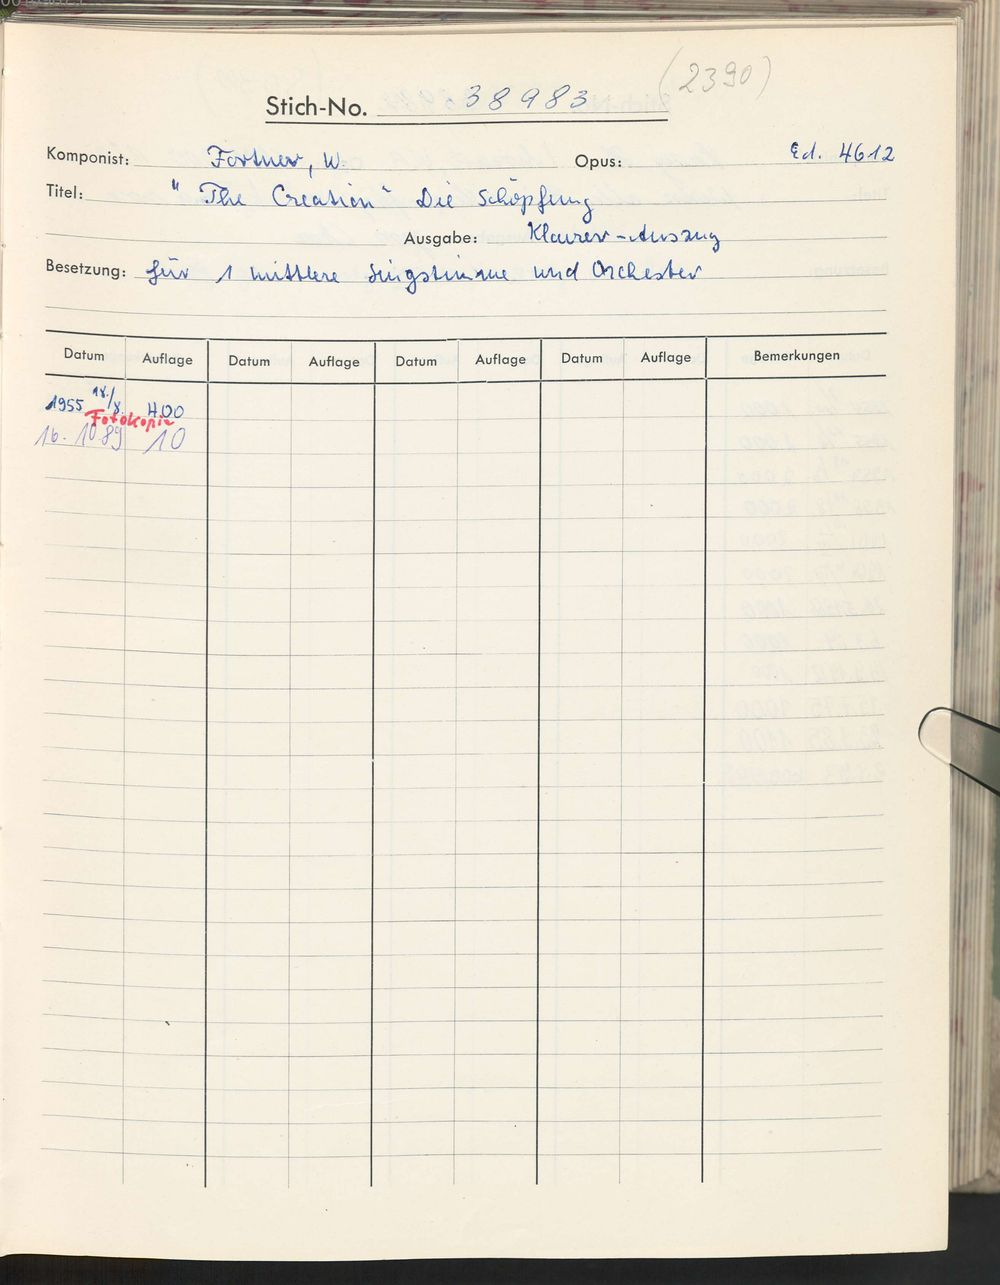 (2390)
Stich-No. 38983
Komponist: Fortner, W. Opus: Ed. 4612
Titel: "The Creation" Die Schöpfung
Ausgabe: Klavier-Auszug
Besetzung: für 1 mittlere Singstimme und Orchester
Datum Auflage Datum Auflage Datum Auflage Datum Auflage Bemerkungen
1955 18./8. 400
Fotokopie
16.10.89 10